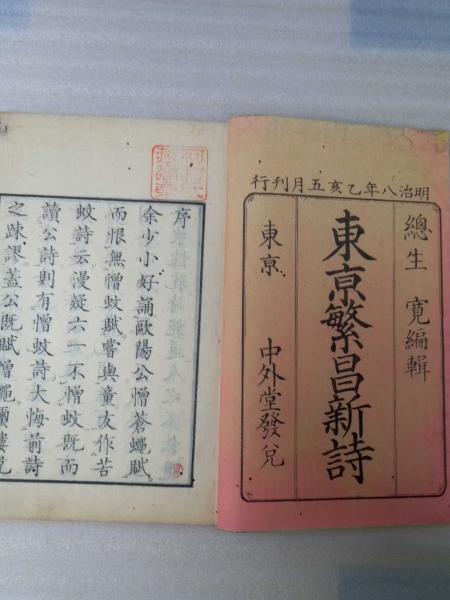 明治八年乙亥五月刊行
總生 寛編輯
東京繁昌新詩
東京 中外堂發兌
序
余少小好誦歐陽公憎蒼蠅賦
而恨無憎蚊賦嘗與童友作苦
蚊詩云漫疑六一不憎蚊既而
讀公詩則有憎蚊詩大悔前詩
之疎謬蓋公既賦憎蠅